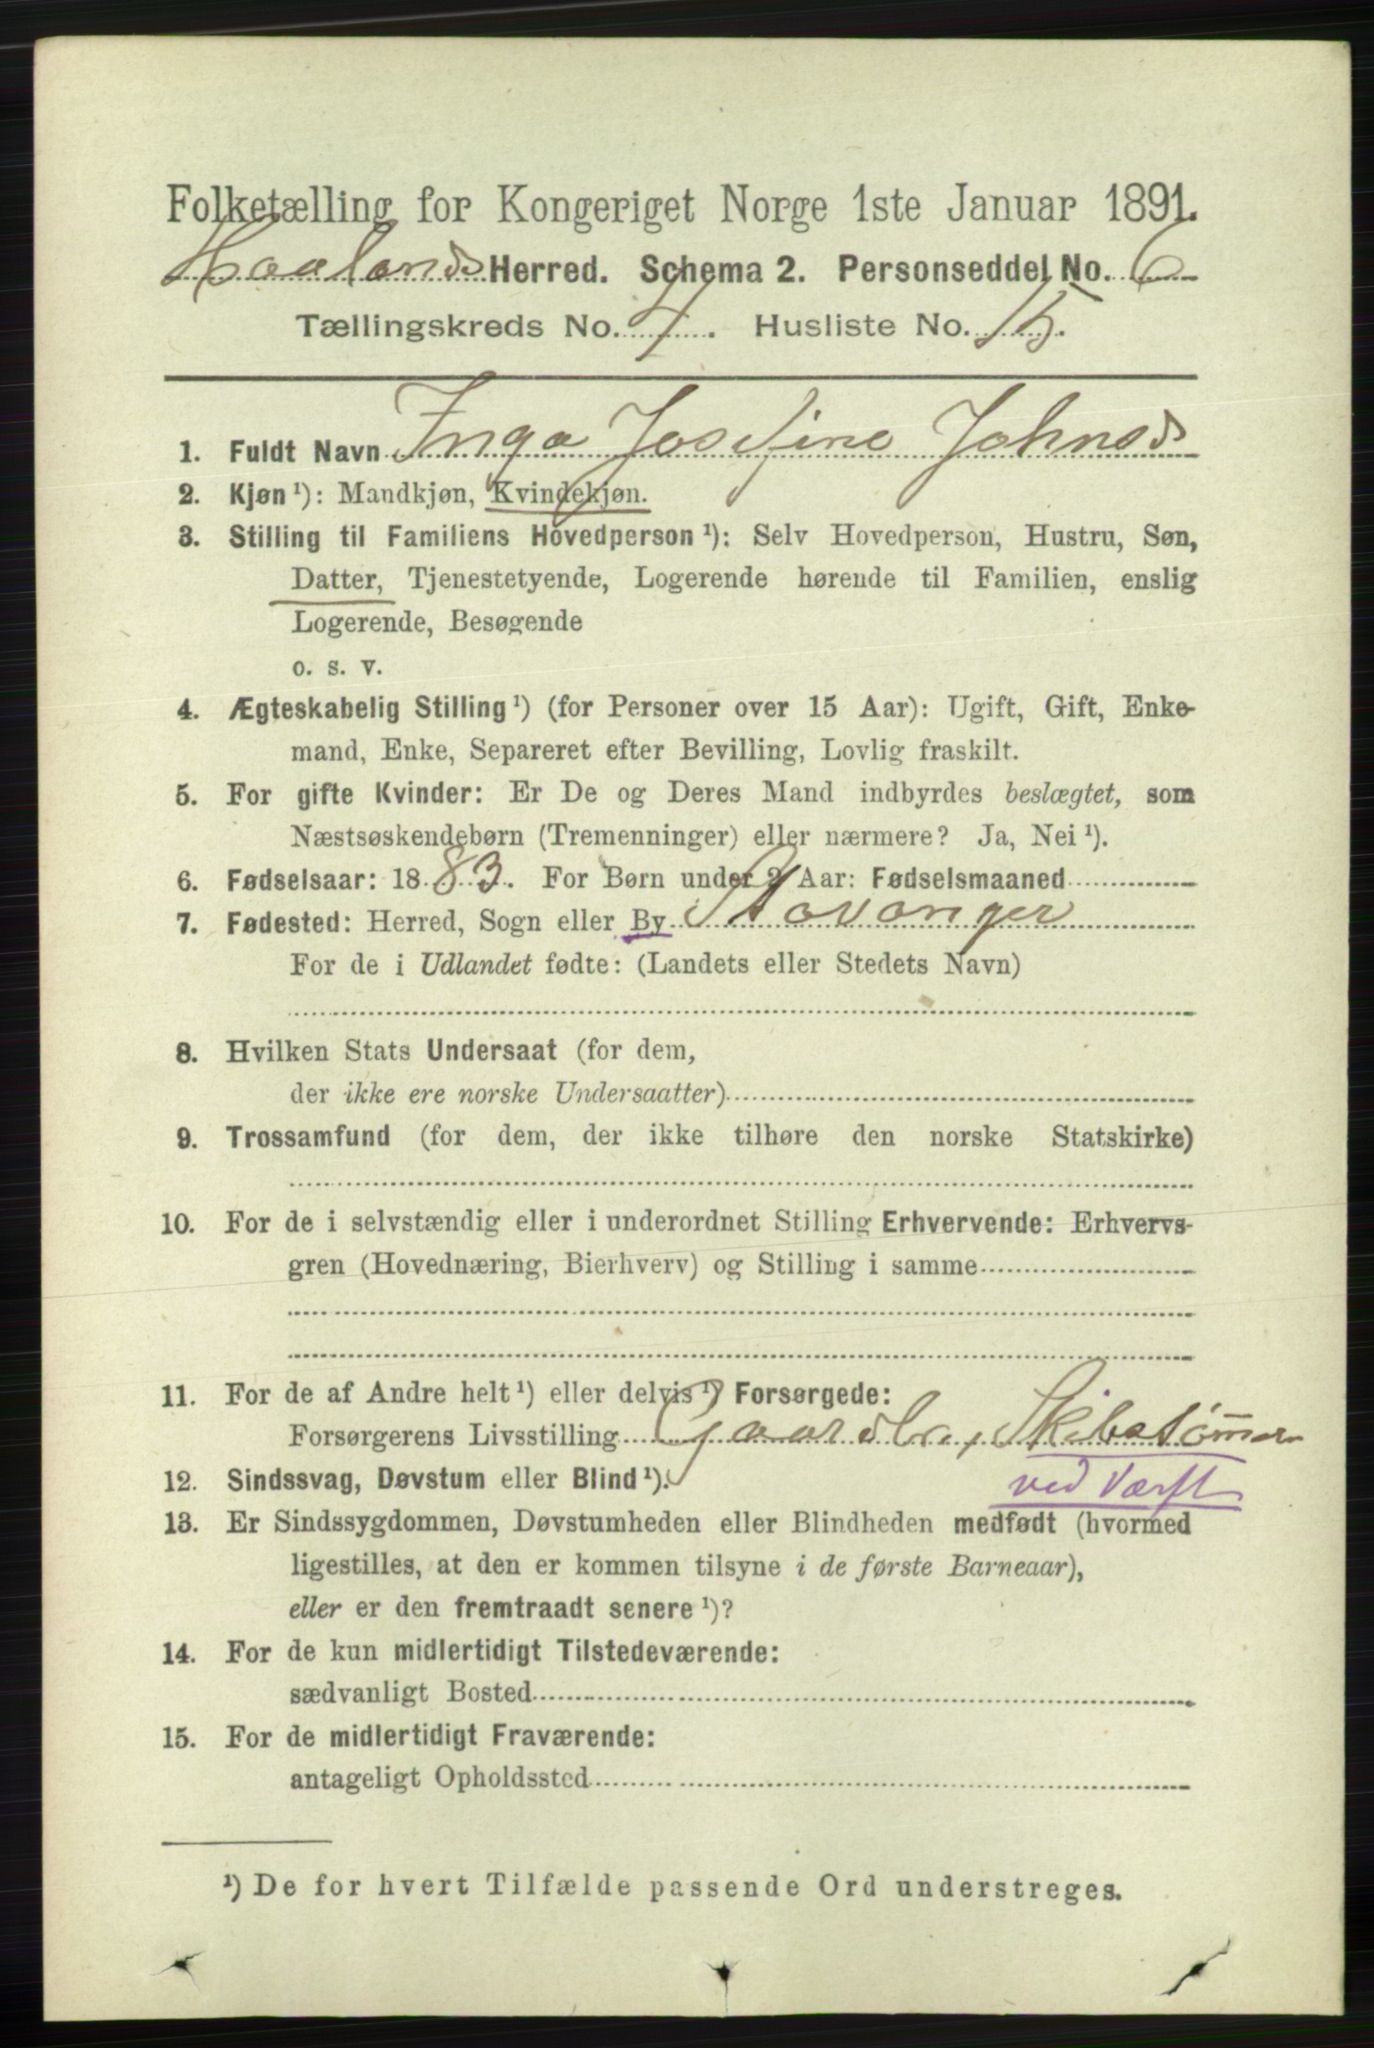 Folketælling for Kongeriget Norge 1ste Januar 1891.
Haalands Herred. Schema 2. Personseddel No. 6
Tællingskreds No. 4. Husliste No. 15.
1. Fuldt Navn Inga Josefine Johnsd
2. Kjøn ¹): Mandkjøn, Kvindekjøn.
3. Stilling til Familiens Hovedperson ¹): Selv Hovedperson, Hustru, Søn,
Datter, Tjenestetyende, Logerende hørende til Familien, enslig
Logerende, Besøgende
o. s. v.
4. Ægteskabelig Stilling ¹) (for Personer over 15 Aar): Ugift, Gift, Enke-
mand, Enke, Separeret efter Bevilling, Lovlig fraskilt.
5. For gifte Kvinder: Er De og Deres Mand indbyrdes beslægtet, som
Næstsøskendebørn (Tremenninger) eller nærmere? Ja, Nei ¹).
6. Fødselsaar: 1883. For Børn under 2 Aar: Fødselsmaaned
7. Fødested: Herred, Sogn eller By Stavanger
For de i Udlandet fødte: (Landets eller Stedets Navn)
8. Hvilken Stats Undersaat (for dem,
der ikke ere norske Undersaatter)
9. Trossamfund (for dem, der ikke tilhøre den norske Statskirke)
10. For de i selvstændig eller i underordnet Stilling Erhvervende: Erhvervs-
gren (Hovednæring, Bierhverv) og Stilling i samme
11. For de af Andre helt ¹) eller delvis ¹) Forsørgede:
Forsørgerens Livsstilling Gaardbr, Skibstømmerm
ved Værft
12. Sindssvag, Døvstum eller Blind ¹).
13. Er Sindssygdommen, Døvstumheden eller Blindheden medfødt (hvormed
ligestilles, at den er kommen tilsyne i de første Barneaar),
eller er den fremtraadt senere ¹)?
14. For de kun midlertidigt Tilstedeværende:
sædvanligt Bosted
15. For de midlertidigt Fraværende:
antageligt Opholdssted
¹) De for hvert Tilfælde passende Ord understreges.